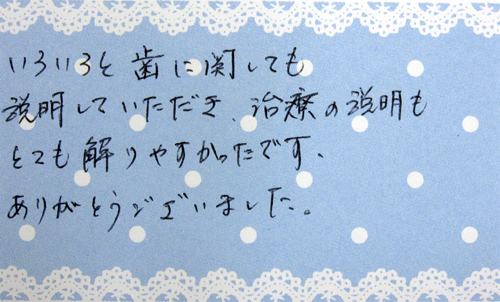 いろいろと歯に関しても
説明していただき、治療の説明も
とても解りやすかったです、
ありがとうございました。